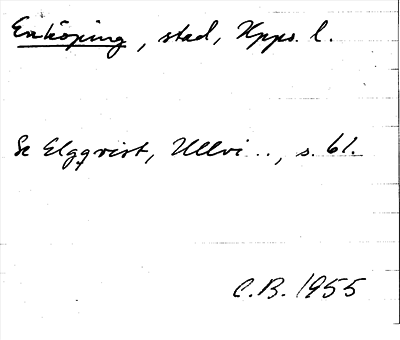 Enköping, stad, Upps. l.
Se Elgqvist, Ullvi..., s. 61.
C.B. 1955